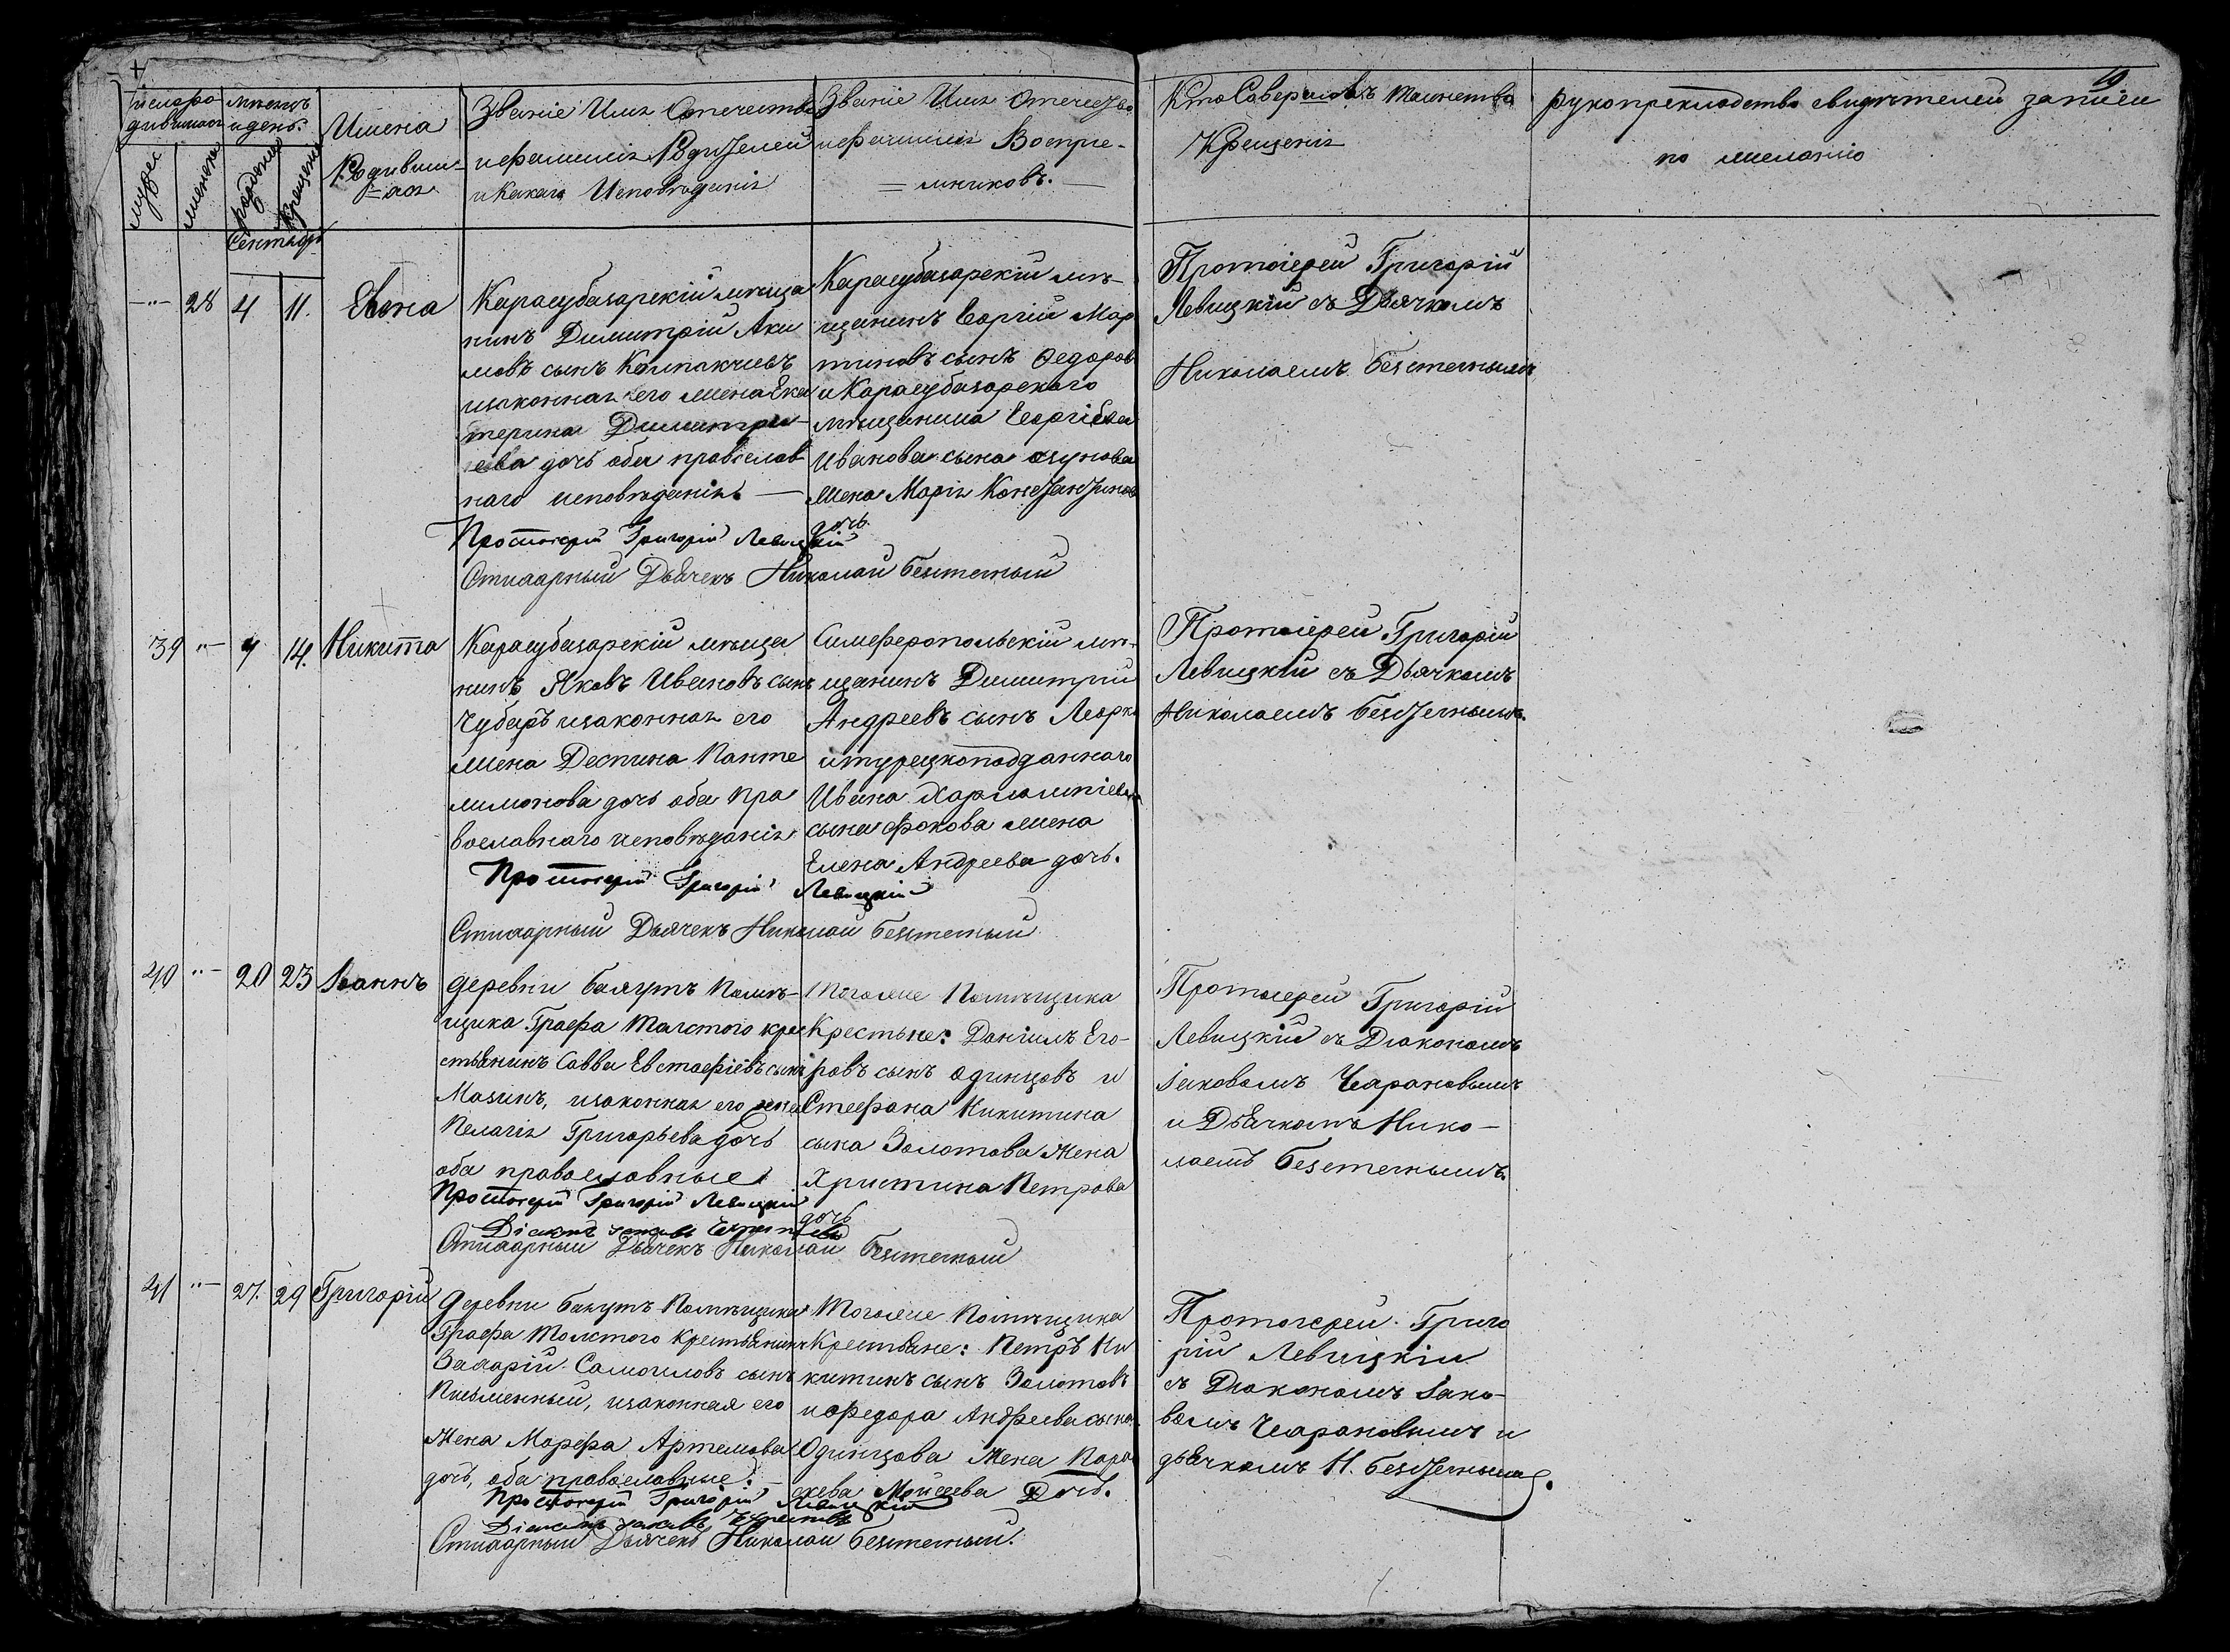 19
Число ро-
дившихся
муже
женска
мѣсяцъ
и день.
рожденія
Крещенія
Имена
Родивши-
=хся
Званіе Имя Отечество
и фамилія Родителей
и Какаго Исповѣданія
Званіе Имя Отечество
и фамилія Воспріе-
= мниковъ. —
Кто Совершалъ Таинство
Крещенія
рукоприкладство свидѣтелей записи
по желанію
Сентябрь
—"— 28 4 11. Елена
Карасубазарскій мѣща
нинъ Димитрій Аки
мовъ сынъ
изаконная его жена Ека
терина Димитрі-
ева дочь оба православ
наго исповѣданія. —
Карасубазарскій мѣ-
щанинъ Георгій Мар
тиновъ сынъ Федоровъ
и Карасубазарскаго
мѣщанина Георгія
Иванова сына Азунова
жена Марія Констянтинова
дочь.
Протоіерей Григорій
Левицкій съ Дьячкомъ
Николаемъ Безстечнымъ
Протоіерей Григорій Левицкій
Стихарный Дьячекъ Николай Безстечный
39 "— 9 14. Никита
Карасубазарскій мѣща
нинъ Яковъ Ивановъ сынъ
Чубаръ изаконная его
жена Деспина Панте
лимонова дочь оба пра
вославнаго исповѣданія
Симферопольскій мѣ-
щанинъ Димитрій
Андреевъ сынъ
итурецкоподданнаго
Ивана Харлампіева
сына Фокова жена
Елена Андреева дочь.
Протоіерей Григорій
Левицкій съ Дьячкомъ
Николаемъ Безстечнымъ.
Протоіерей Григорій Левицкій
Стихарный Дьячекъ Николай Безстечный
40 "— 20 23 Іоаннъ
деревни Баяутъ Помѣ-
щика Графа Толстого кре
стьянинъ Савва Евстафіевъ сынъ
Мазинъ, изаконная его жена
Пелагія Григорьева дочь
оба православные
Тогоже Помѣщика
Крестьяне: Даніилъ Его-
ровъ сынъ Одинцовъ и
Стефана Никитина
сына Золотова Жена
Христина Петрова
дочь
Протоіерей Григорій
Левицкій съ Діакономъ
Іаковомъ
и Дьячкомъ Нико-
лаемъ Безстечнымъ.
Протоіерей Григорій Левицкій
Діаконъ Іаковъ
Стихарный Дьячекъ Николай Безстечный
41 "— 27. 29 Григорій
Деревни Баяутъ Помѣщика
Графа Толстого Крестьянинъ
Захарій Самоиловъ сынъ
Письменный, изаконная его
Жена Марфа Артемова
дочь, оба православные. —
Тогоже Помѣщика
Крестьяне: Петръ Ни
китинъ сынъ Золотовъ
и Федора Андреева сына
Одинцова Жена Пара
скева Моисеева Дочь.
Протоіерей Григо
рій Левицкій
съ Діакономъ Іако-
вомъ и
дьячкомъ Н. Безстечнымъ.
Протоіерей Григорій Левицкій
Діаконъ Іаковъ
Стихарный Дьячекъ Николай Безстечный.